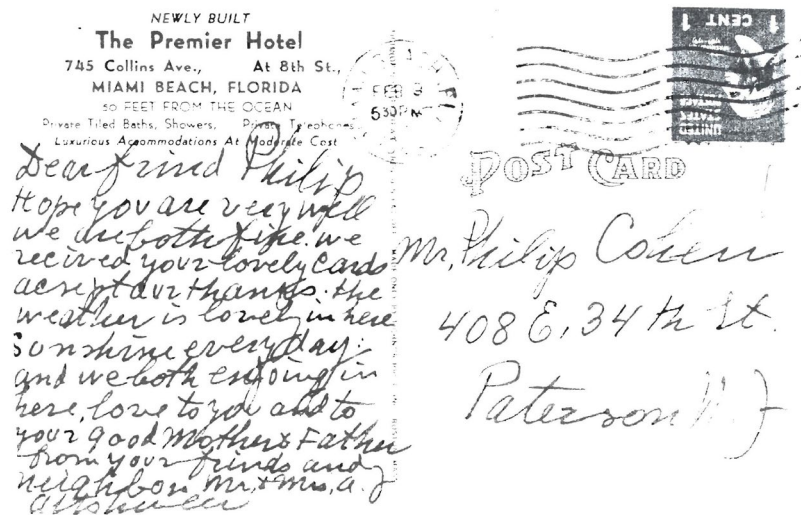 NEWLY BUILT
The Premier Hotel
745 Collins Ave., At 8th St.,
MIAMI BEACH, FLORIDA
50 FEET FROM THE OCEAN
Private Tiled Baths, Showers, Private Telephones
Luxurious Accommodations At Moderate Cost
FEB 3
530 PM
1 CENT 1
UNITED
STATES
POST CARD
Dear frind Philip
Hope you are very well
we are both fine. we
recived your lovely cards
acsept our thanks. the
weather is lovely in here
sunshine every day.
and we both enjoing in
here, love to you and to
your good Mother & Father
from your frinds and
neighbors Mr. & Mrs. A. J
Mr. Philip Cohen
408 E. 34th St.
Paterson N J